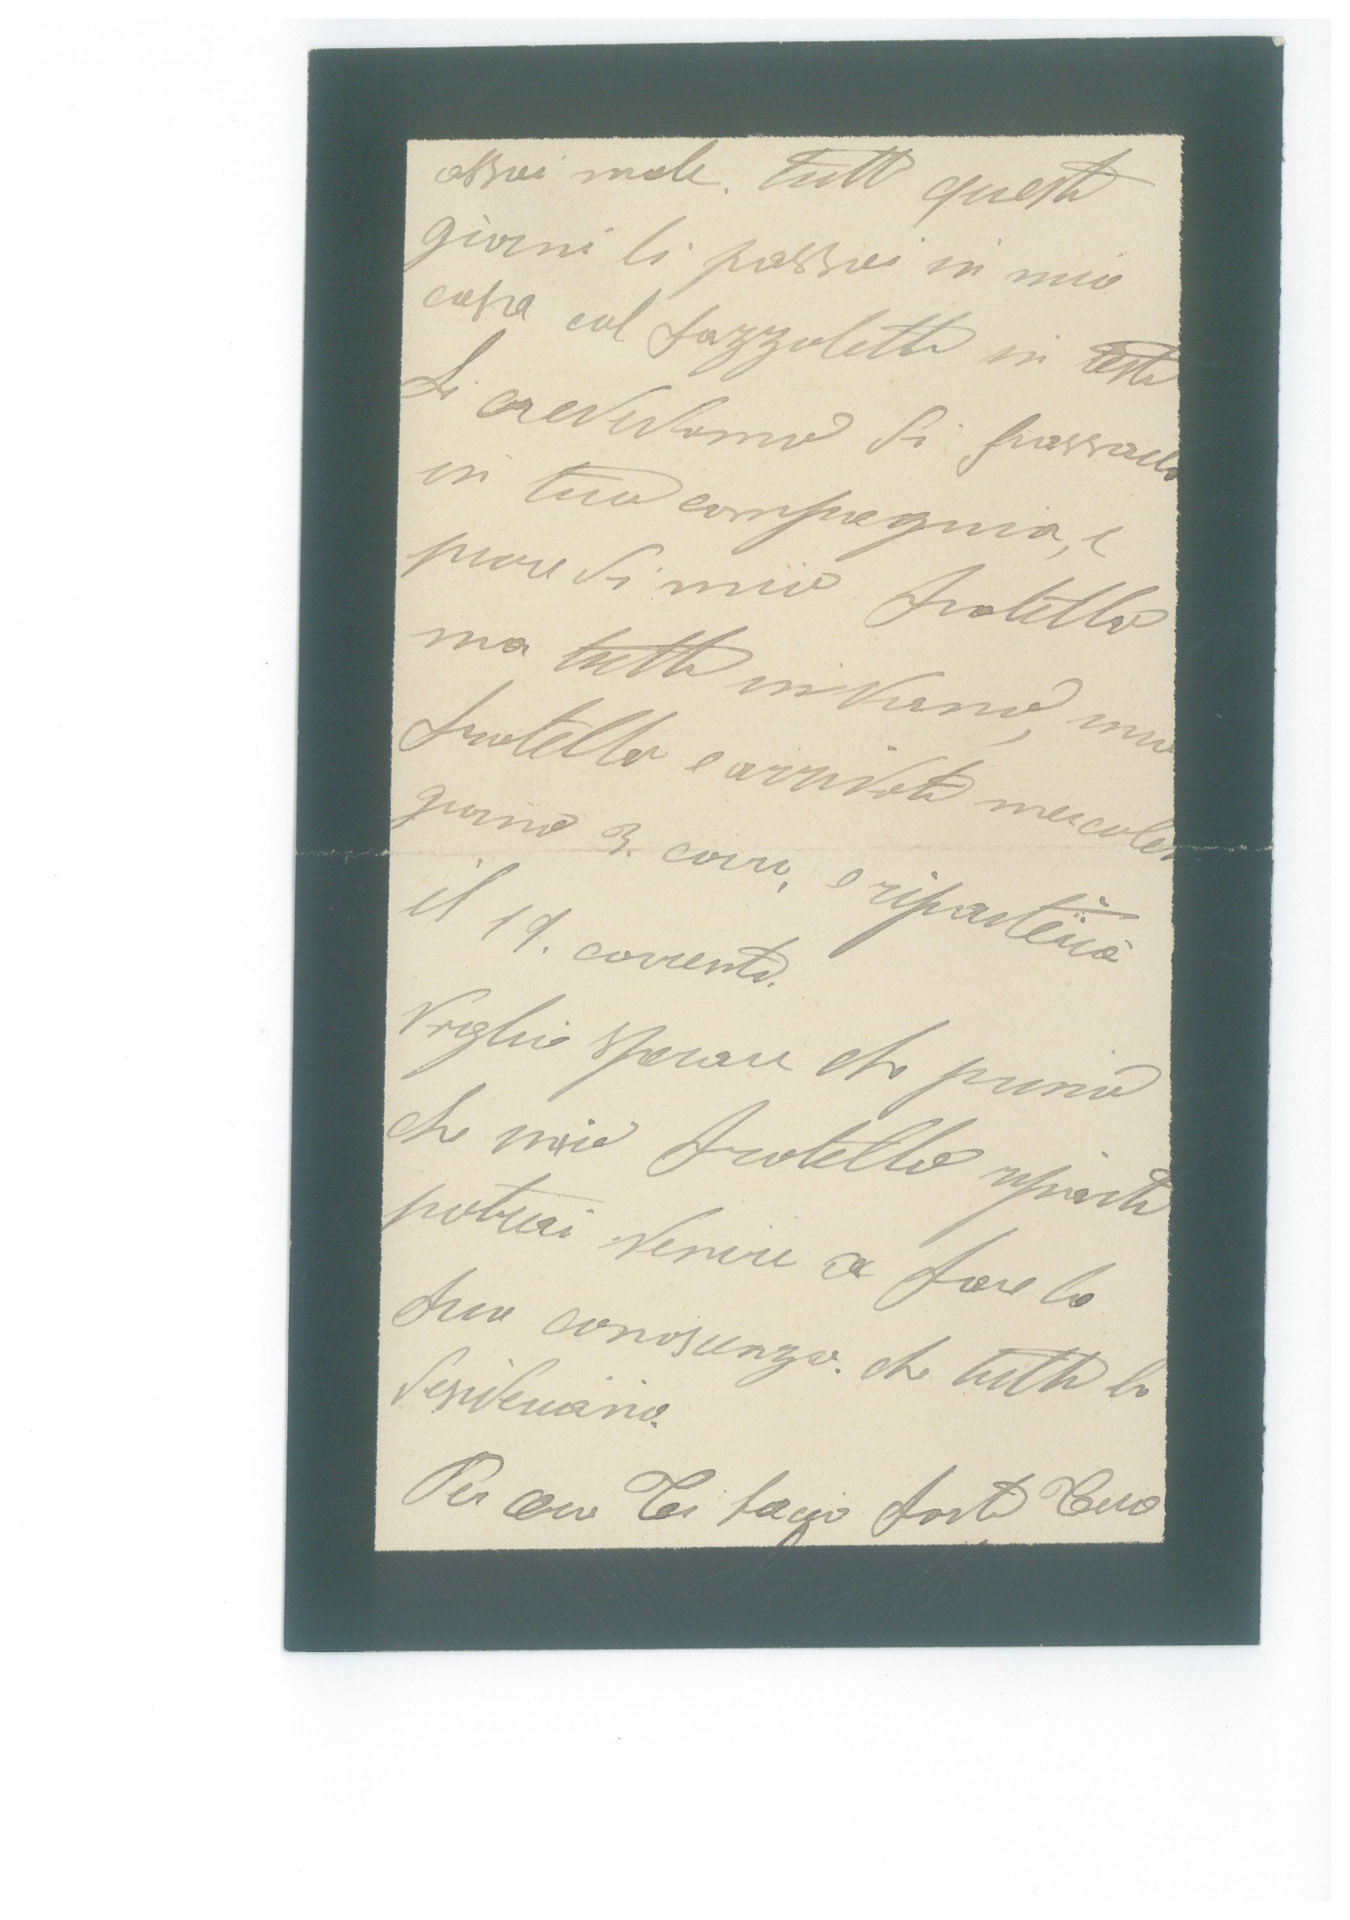 assai male. tutti questi
giorni li passai in mia
casa col fazzoletto in testa
Si credevamo di passarli
in tua compagnia, e
pure di mio fratello
ma tutto invano, mio
fratello e arrivato mercoledi
giorno 3. corr, e ripartirà
il 19. corrente.
Voglio sperare che prima
che mio fratello riparta
potrai venire a fare la
sua conoscenza. che tutti lo
desideriamo.
Per ora Ti bacio forte Tuo